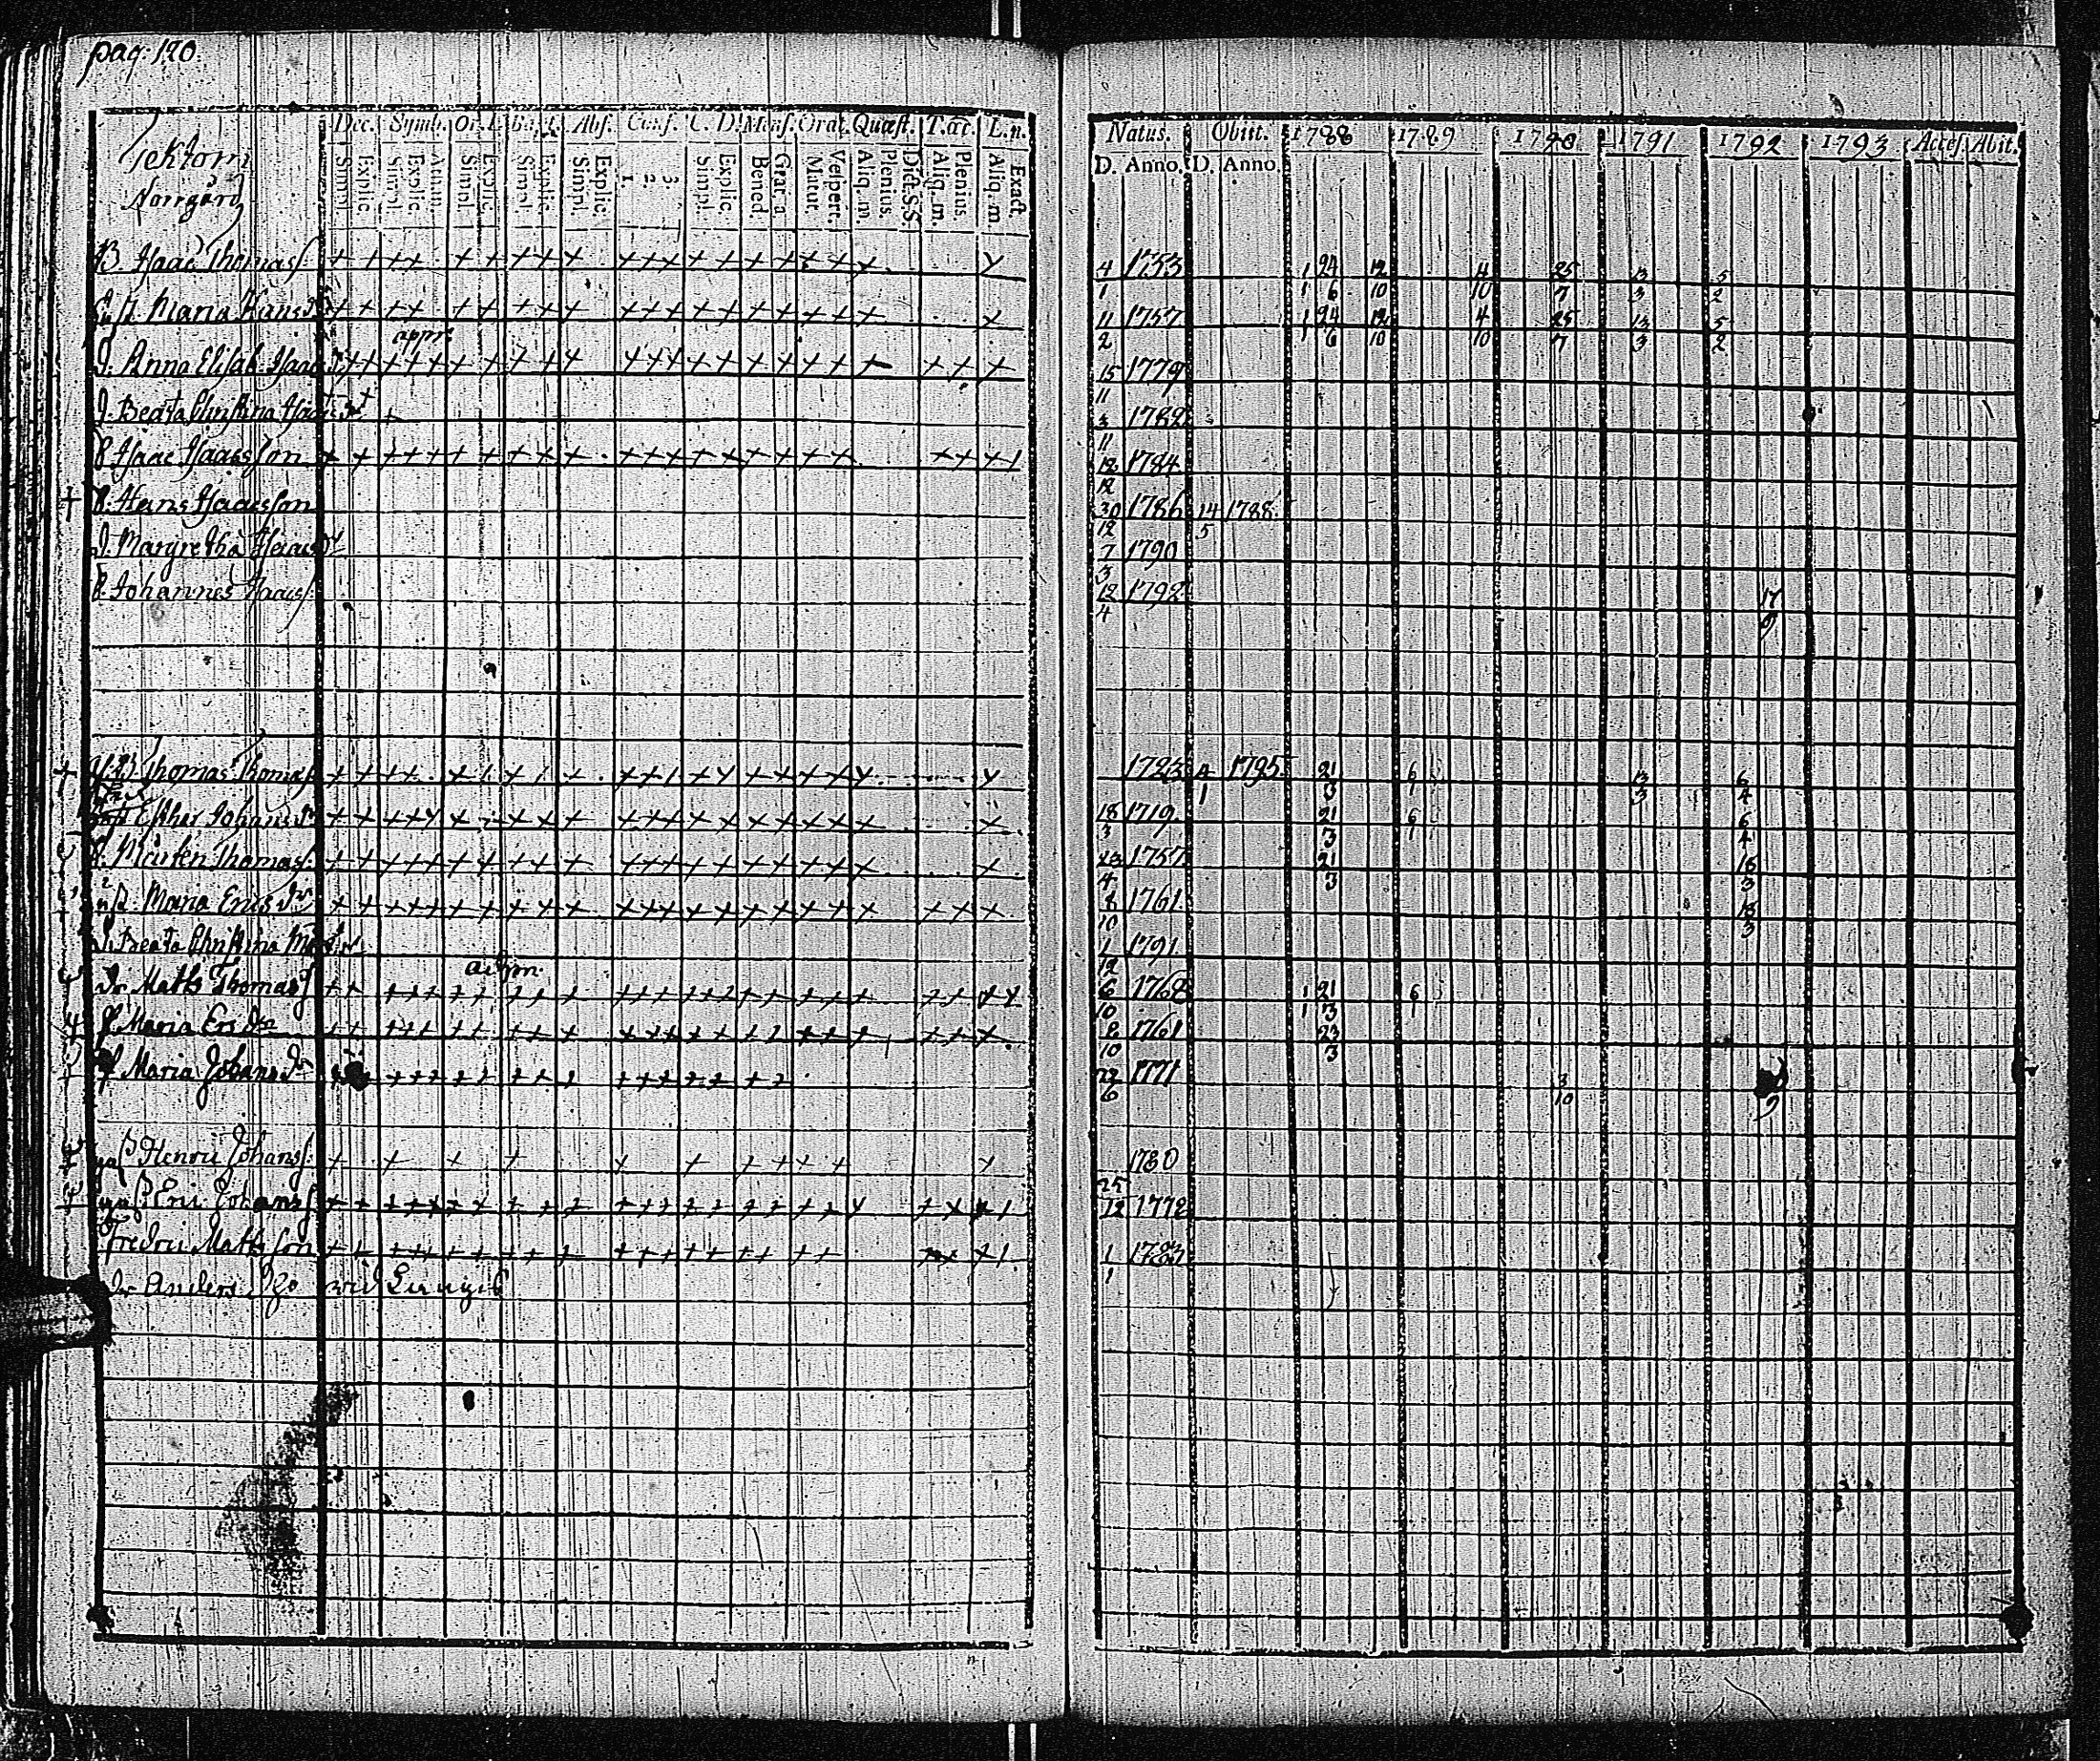 pag: 120.
Dec. Symb. Or. Abs. Conf. C. D. Mens. Orat. Quæst. T. æc. L. n.
Simpl. Explic. Simpl. Explic. Athan. Simpl. Explic. Simpl. Explic. Simpl. Explic. 1. 2. 3. Simpl. Explic. Bened. Grat. a Matut. Vespert. Aliq. m Plenius. Dict. S. S. Aliq. m. Plenius. Aliq. m Exact.
Norrgård
B Isaac Thomass
h. Maria Hans dr
appr.
D. Anna Elisab. Isaac dr
D. Beata Christina Isaacs dr
S Isaac Isaacsson
S. Hans Isaacsson
D. Margretha Isaacs dr
S. Johannes Isaacs
Thomas Thomass
Esther Johans dr
S. Mårten Thomass
h. Maria Erics dr
D. Beata Christina
adm.
Dr Matts Thomass
P Maria Ers dr
P Maria Johans dr
Henric Johanss:
Eric Johanss
Fredric Mattsson
Dr Anders
Natus. Obiit. 1788 1789 1790 1791 1792 1793 Acces. Abit.
D. Anno. D. Anno.
4 1753 1 24 12 4 25 13 5
1 1 6 10 10 7 3 2
11 1757 1 24 12 4 25 13 5
2 1 6 10 10 7 3 2
15 1779
11
3 1782
11
12 1784
12
30 1786 14 1788.
12 5
7 1790
3
12 1792 17
4 9
1723 4 1795. 21 6 13 6
1 3 1 3 4
18 1719 21 6 6
3 3 1 4
23 1757 21 16
4 3 3
8 1761 18
10 3
1 1791
12
6 1768 1 21 6
10 1 3 1
8 1761 23
10 3
22 1771 3
6 10 9
1780
25
12 1772
1 1783
1